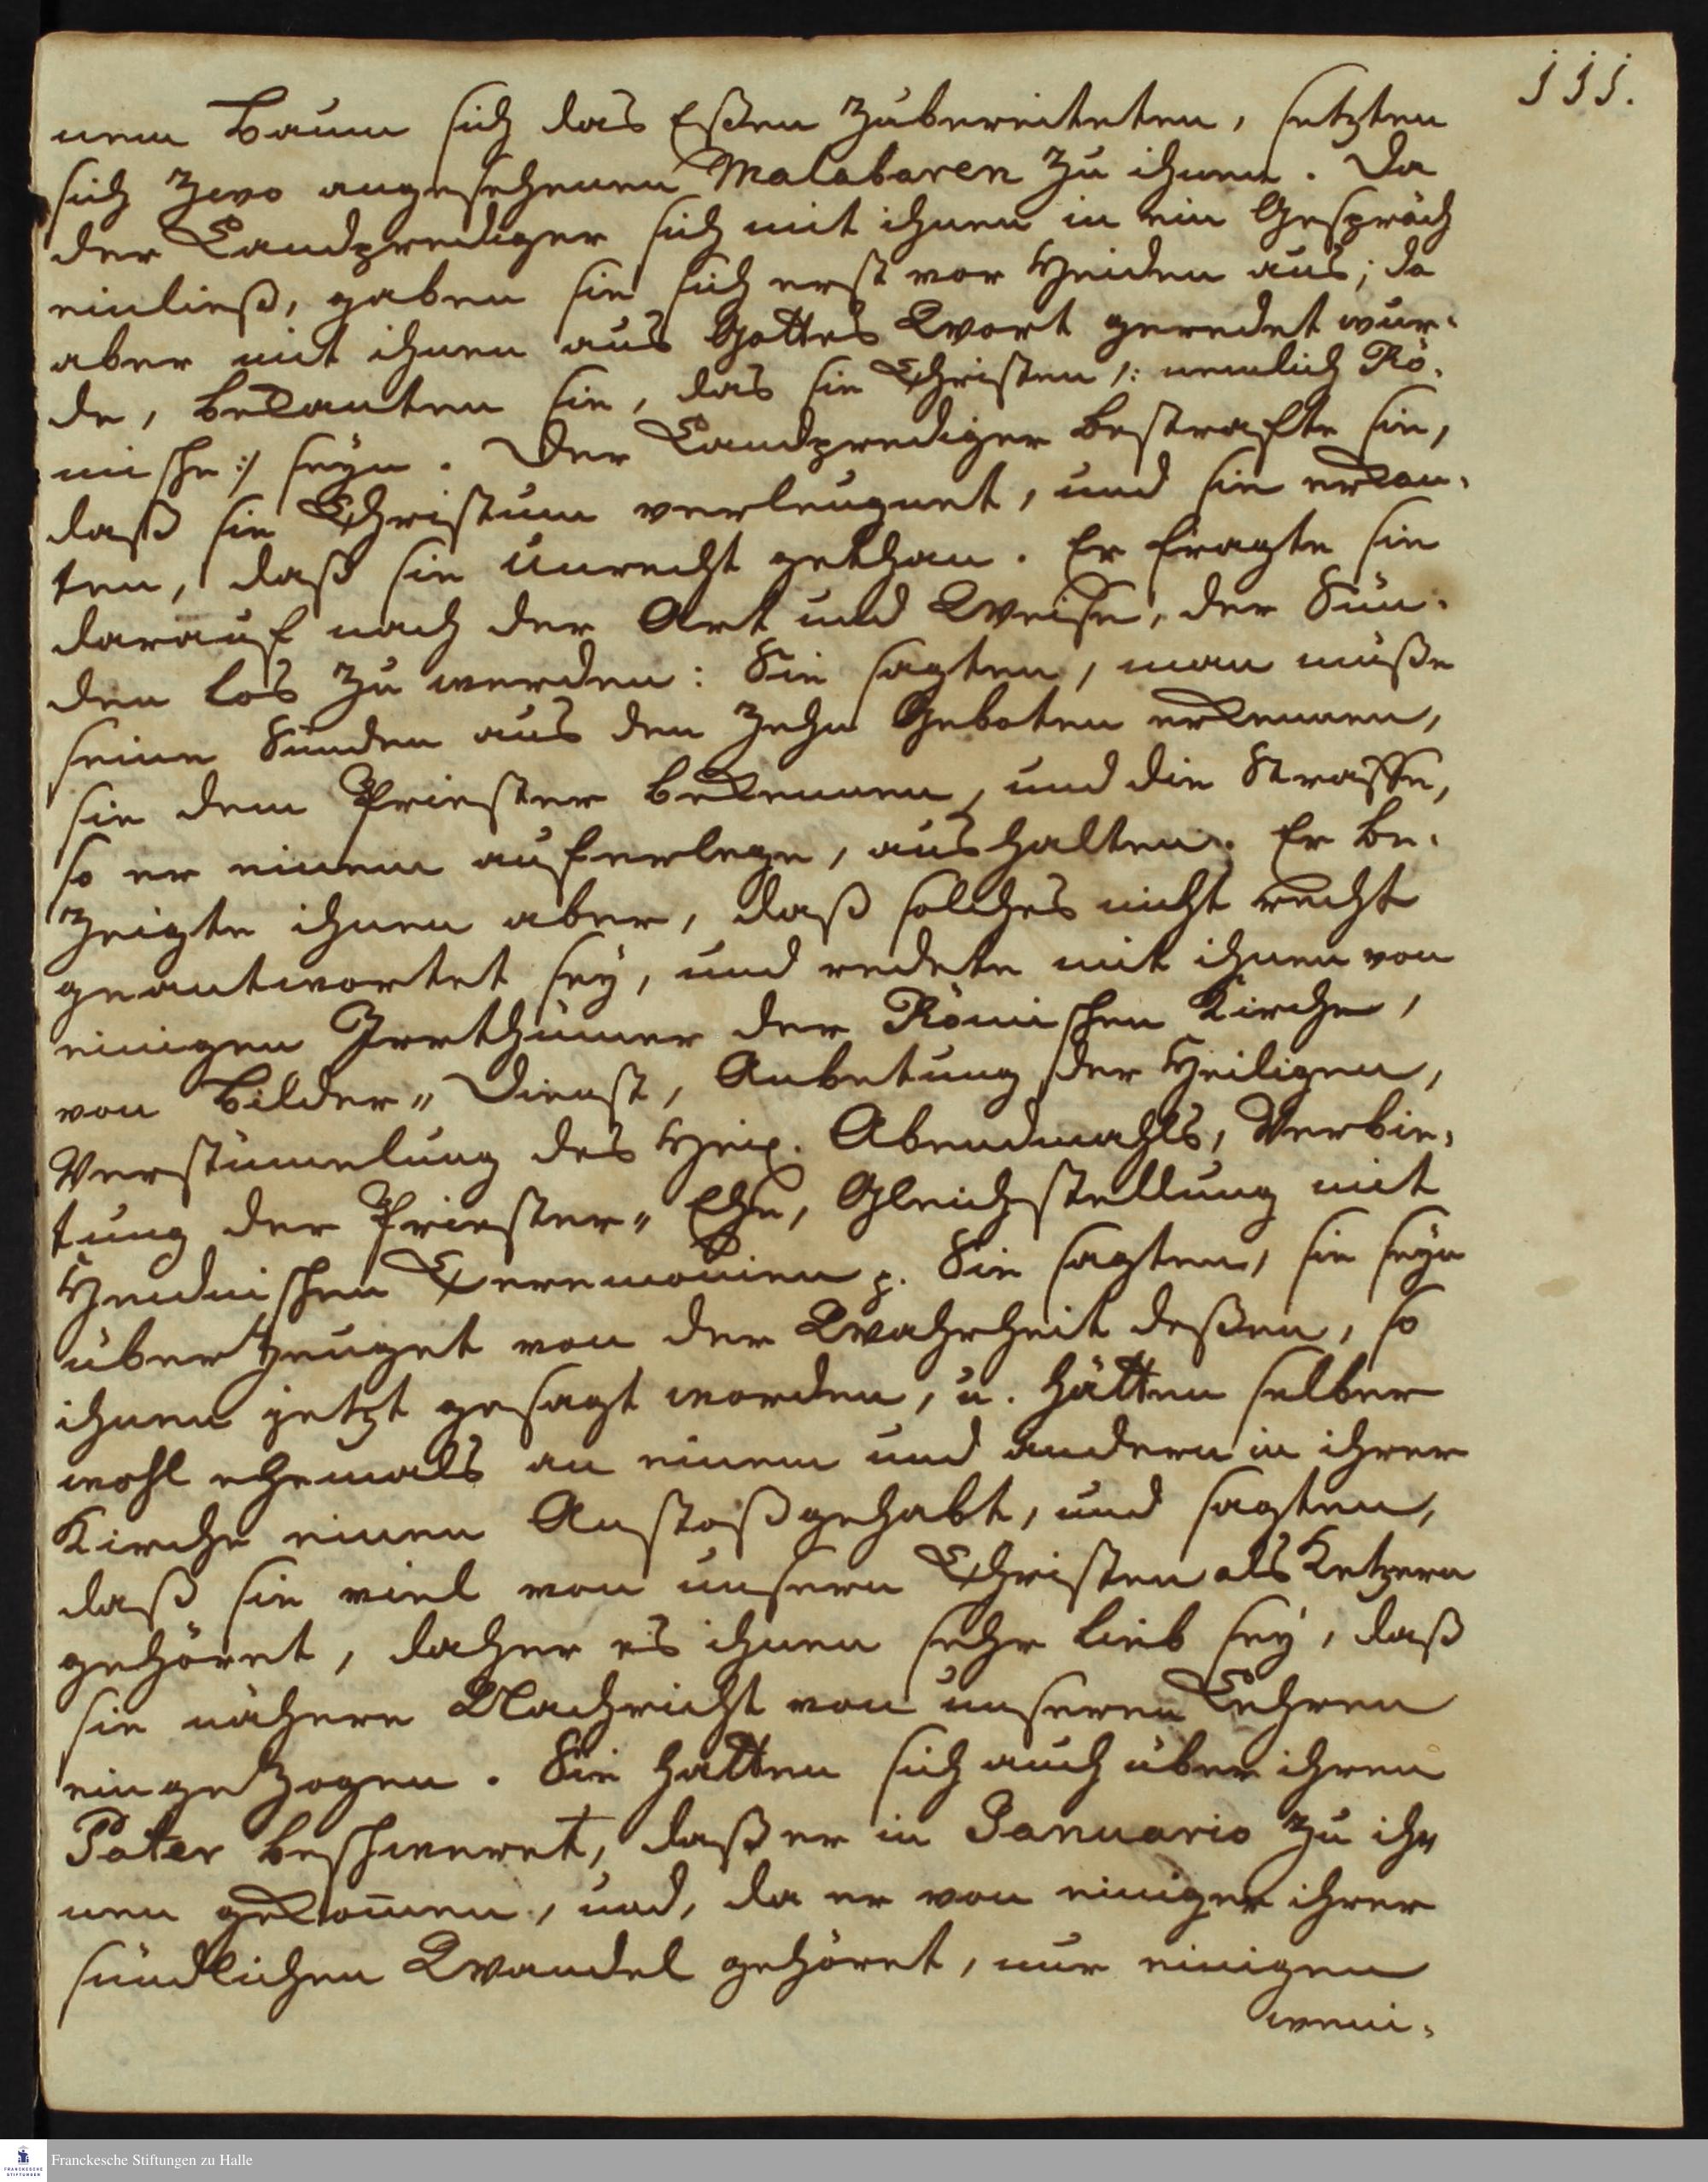 111.
nem Baum sich das Eßen zubereiteten, setzten
sich zwo angesehenen Malabaren zu ihnen. Da
der Landprediger sich mit ihnen in ein Gespräch
einließ, gaben sie sich erst vor Heiden aus; da
aber mit ihnen aus Gottes Wort geredet wur-
de, bekanten sie, das sie Christen /: nemlich Rö-
mische :/ seyn. Der Landprediger bestrafte sie,
daß sie Christum verleugnet, und sie erkan-
ten, daß sie unrecht gethan. Er fragte sie
darauf nach der Art und Weise, der Sün-
den los zu werden: Sie sagten, man müße
seine Sünden aus den Zehn Geboten erkennen,
sie dem Priester bekennen, und die Straffe,
so er einem auferlege, aushalten. Er be-
zeigte ihnen aber, daß solches nicht recht
geantwortet sey, und redete mit ihnen von
einigen Irrthümer der Römischen Kirche,
von Bilder-Dienst, Anbetung der Heiligen,
Verstümelung des Heil. Abendmahls, Verbie-
tung der Priester-Ehe, Gleichstellung mit
Heidnischen Ceremonien p. Sie sagten, sie seyn
überzeuget von der Wahrheit deßen, so
ihnen jetzt gesagt worden, u. hätten selber
wohl ehemals an einem und andern in ihrer
Kirche einen Anstoß gehabt, und sagten,
daß sie viel von unsern Christen als Ketzern
gehöret, daher es ihnen sehr lieb sey, daß
sie nähere Nachricht von unseren Lehren
eingezogen. Sie hatten sich auch über ihren
Pater beschweret, daß er in Januario zu ih-
nen gekom̄en, und, da er von einiger ihrer
sündlichen Wandel gehöret, nur einigen
weni-
Franckesche Stiftungen zu Halle
FRANCKESCHE
STIFTUNGEN